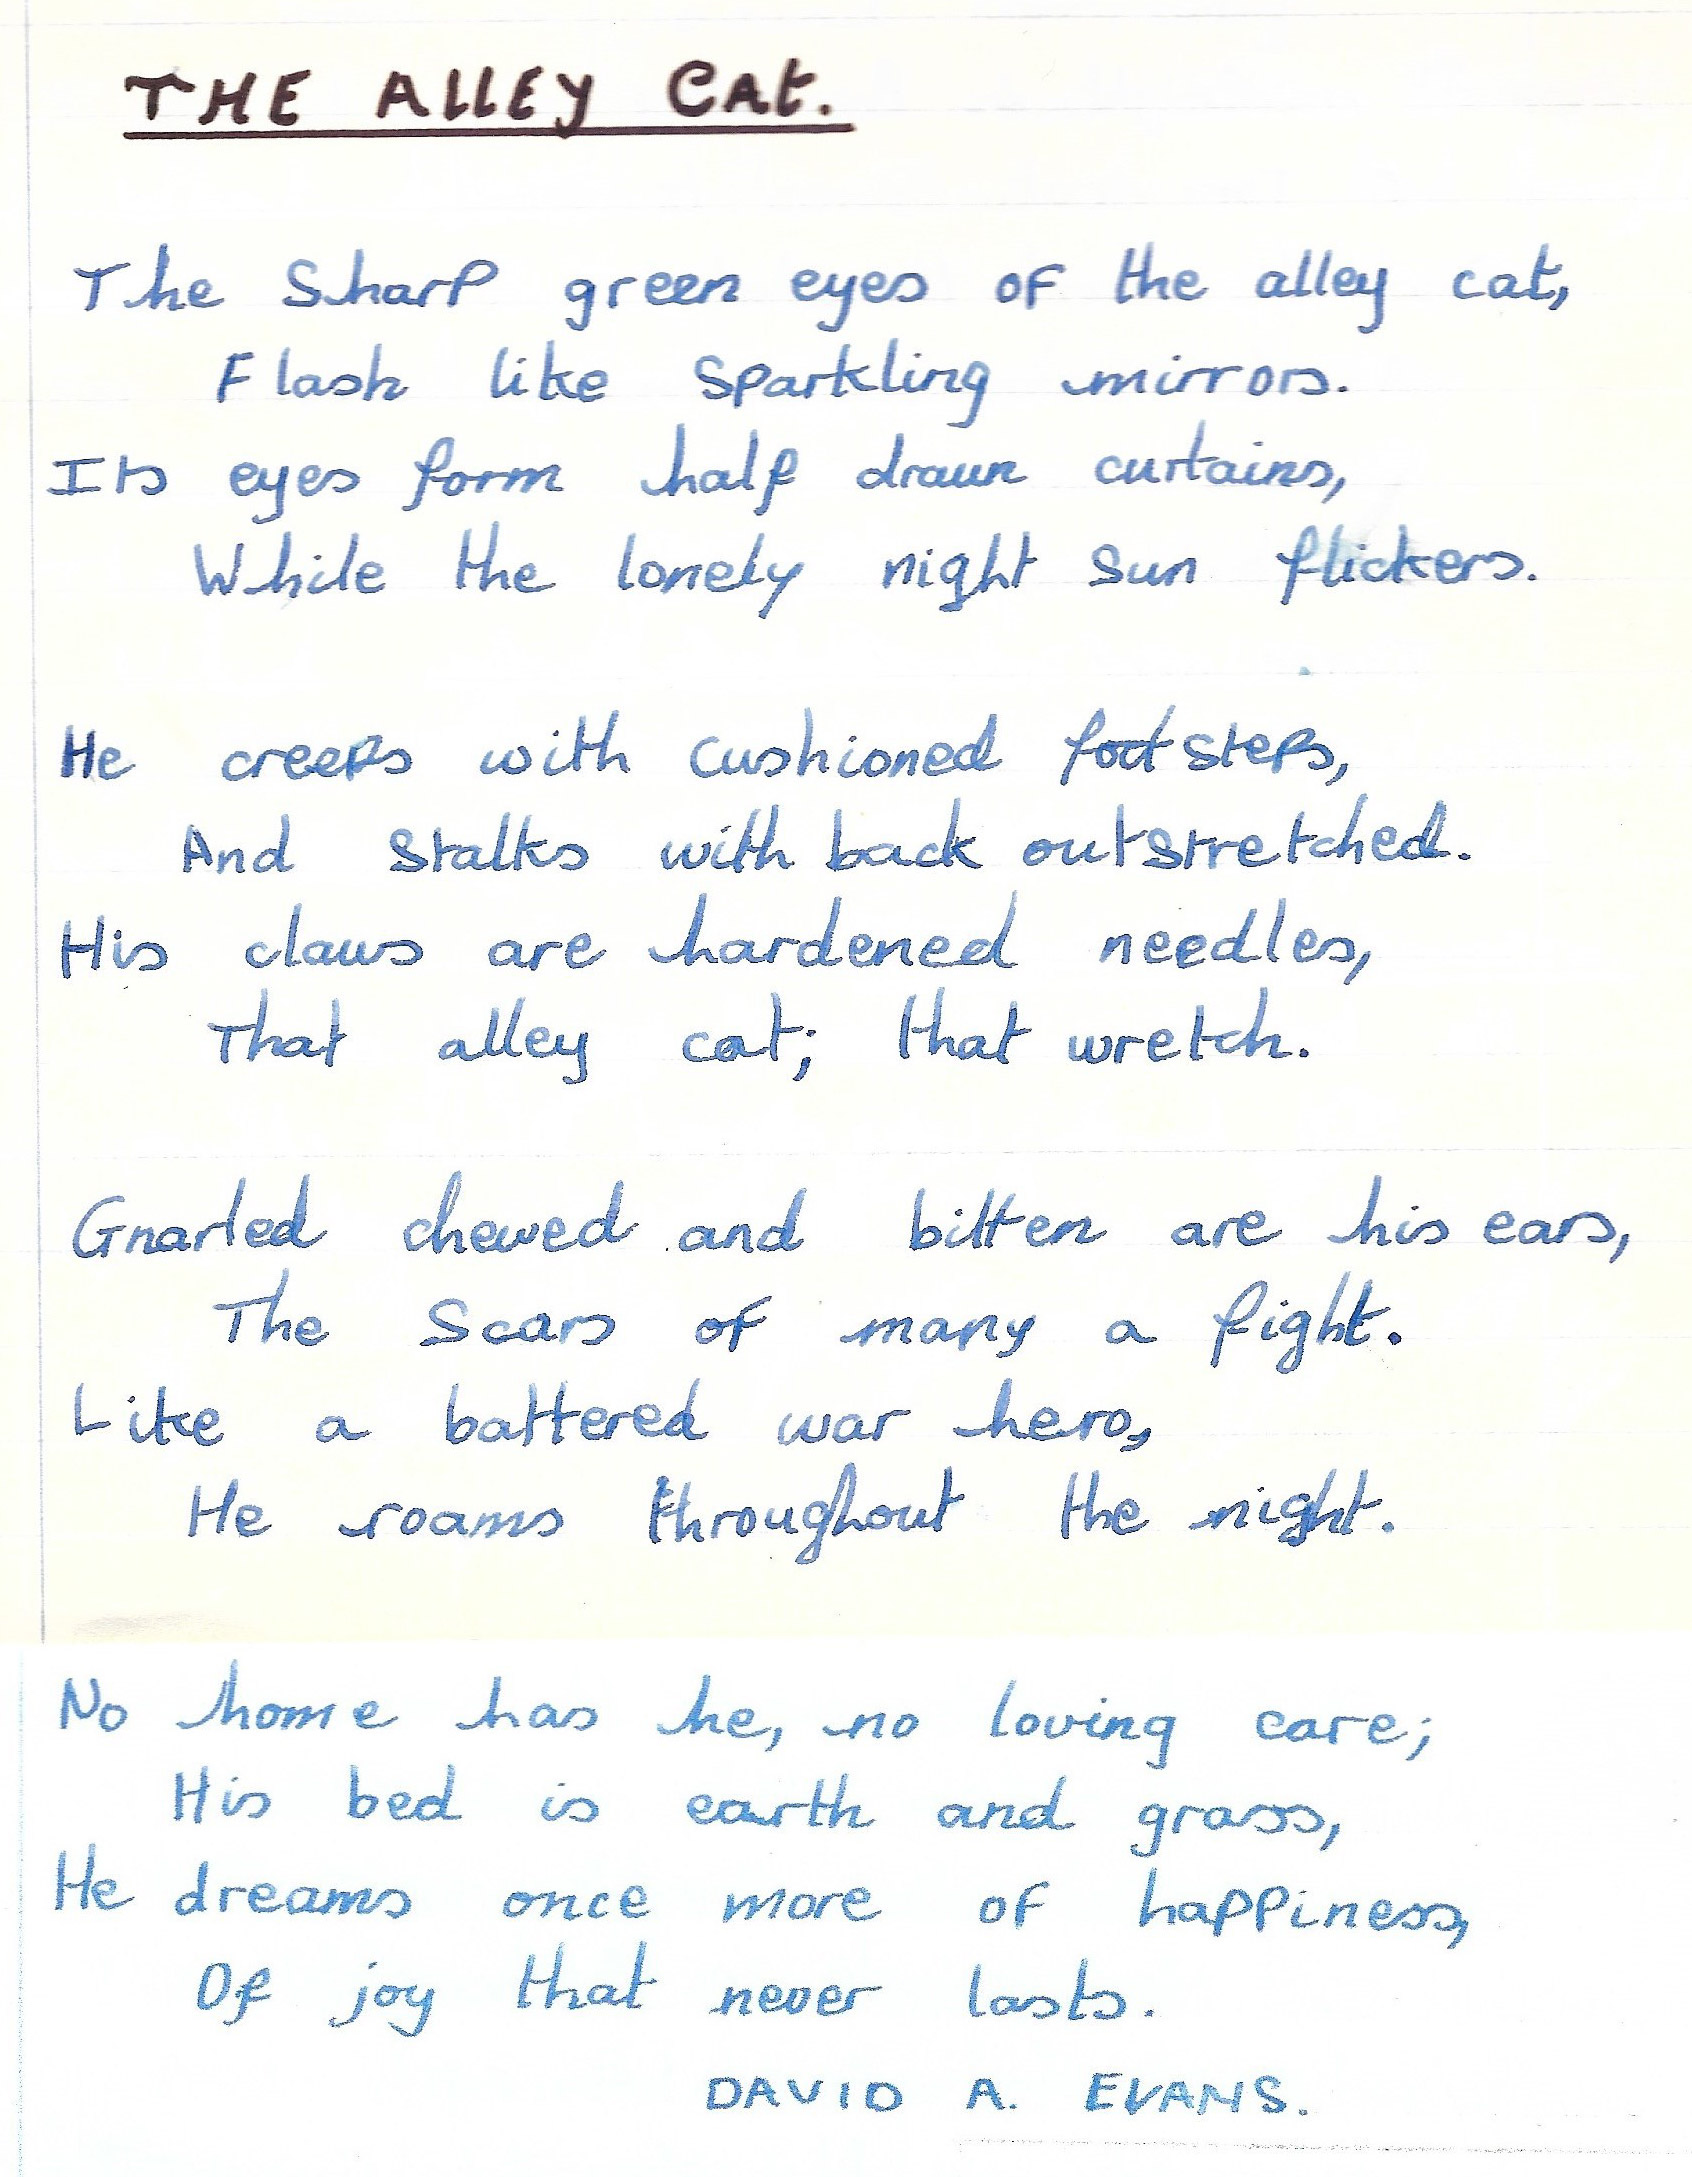 THE ALLEY CAT.
The Sharp green eyes of the alley cat,
Flash like Sparkling mirrors.
Its eyes form half drawn curtains,
While the lonely night Sun flickers.
He creeps with cushioned footsteps,
And stalks with back outstretched.
His claws are hardened needles,
That alley cat; that wretch.
Gnarled chewed and bitten are his ears,
The Scars of many a fight.
Like a battered war hero,
He roams throughout the night.
No home has he, no loving care;
His bed is earth and grass,
He dreams once more of happiness,
Of joy that never lasts.
DAVID A. EVANS.